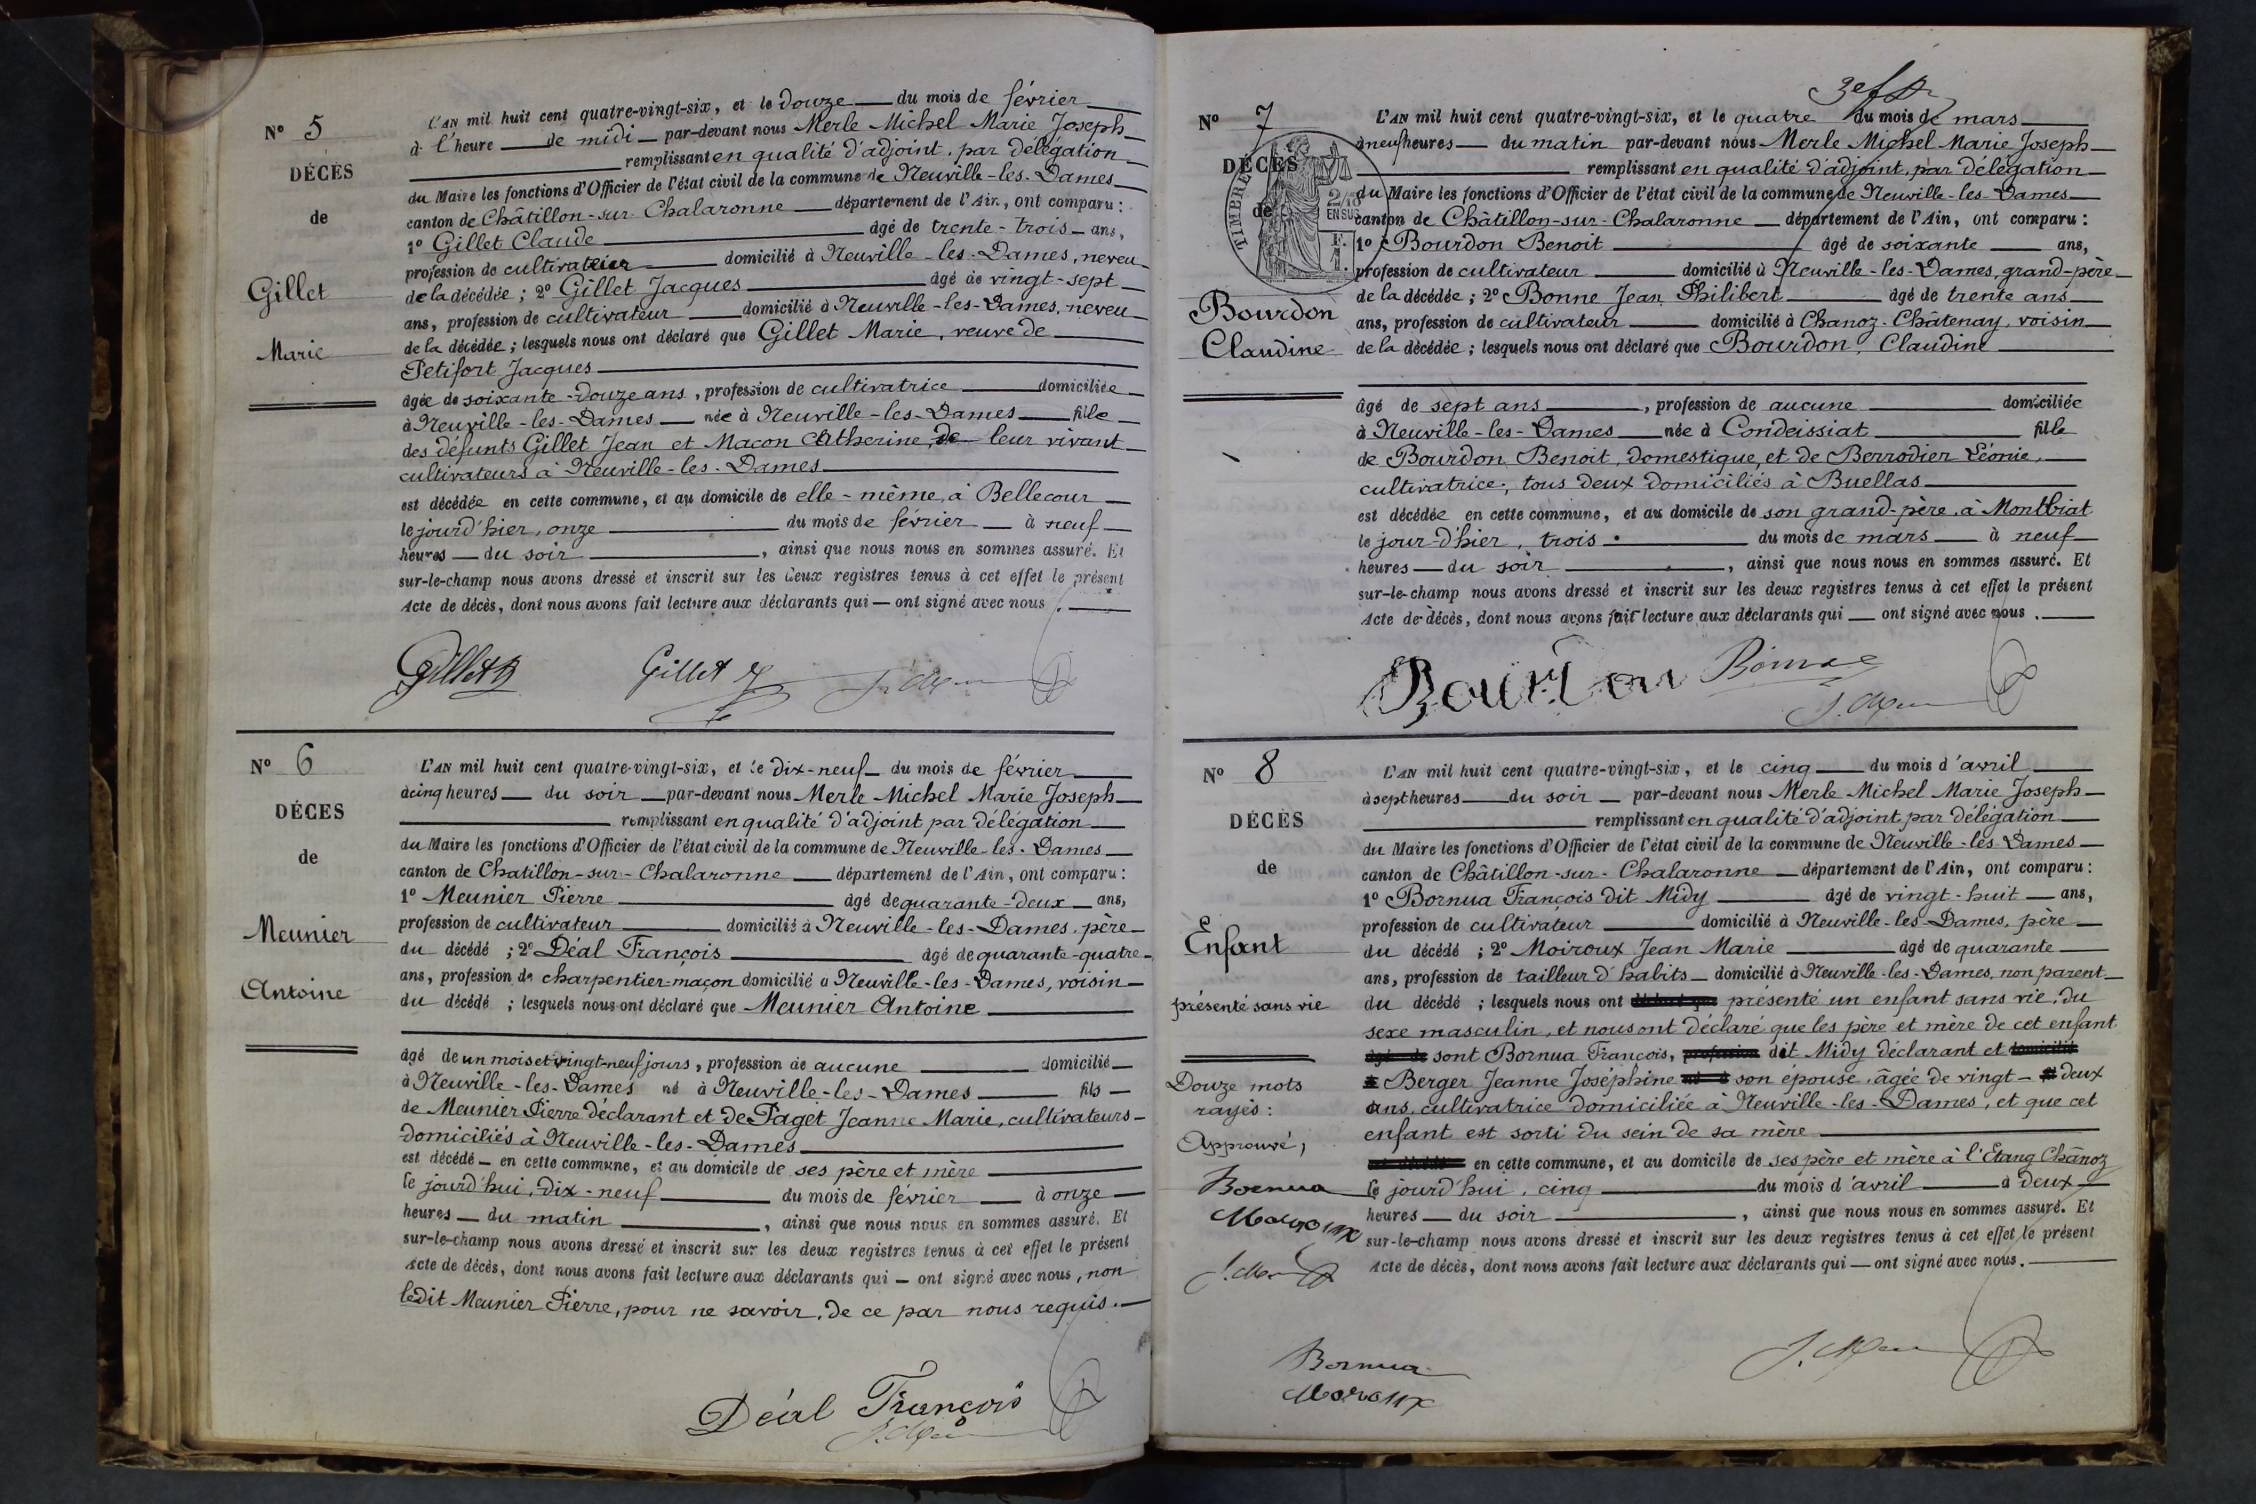 Nº 5
DÉCÈS
de
Gillet
Marie
L'AN mil huit cent quatre-vingt-six, et le douze du mois de février
à l'heure de midi par-devant nous Merle Michel Marie Joseph
remplissant en qualité d'adjoint, par délégation
du Maire les fonctions d'Officier de l'état civil de la commune de Neuville-les-Dames
canton de Châtillon-sur-Chalaronne département de l'Ain, ont comparu :
1º Gillet Claude âgé de trente-trois ans,
profession de cultivateur domicilié à Neuville-les-Dames, neveu
de la décédée ; 2º Gillet Jacques âgé de vingt-sept
ans, profession de cultivateur domicilié à Neuville-les-Dames, neveu
de la décédée ; lesquels nous ont déclaré que Gillet Marie, veuve de
Petifort Jacques
âgée de soixante-douze ans, profession de cultivatrice domiciliée
à Neuville-les-Dames née à Neuville-les-Dames fille
des défunts Gillet Jean et Macon Catherine, de leur vivant
cultivateurs à Neuville-les-Dames
est décédée en cette commune, et au domicile de elle-même, à Bellecour
le jourd'hier, onze du mois de février à neuf
heures du soir , ainsi que nous nous en sommes assuré. Et
sur-le-champ nous avons dressé et inscrit sur les deux registres tenus à cet effet le présent
Acte de décès, dont nous avons fait lecture aux déclarants qui ont signé avec nous .
Gillet
Gillet J
Nº 6
DÉCES
de
Meunier
Antoine
L'AN mil huit cent quatre-vingt-six, et le dix-neuf du mois de février
à cinq heures du soir par-devant nous Merle Michel Marie Joseph
remplissant en qualité d'adjoint par délégation
du Maire les fonctions d'Officier de l'état civil de la commune de Neuville-les-Dames
canton de Chatillon-sur-Chalaronne département de l'Ain, ont comparu :
1º Meunier Pierre âgé de quarante-deux ans,
profession de cultivateur domicilié à Neuville-les-Dames, père
du décédé ; 2º Déal François âgé de quarante-quatre
ans, profession de charpentier-maçon domicilié à Neuville-les-Dames, voisin
du décédé ; lesquels nous ont déclaré que Meunier Antoine
âgé de un mois et vingt-neuf jours, profession de aucune domicilié
à Neuville-les-Dames né à Neuville-les-Dames fils
de Meunier Pierre déclarant et de Paget Jeanne Marie, cultivateurs
domiciliés à Neuville-les-Dames
est décédé en cette commune, et au domicile de ses père et mère
le jourd'hui, dix-neuf du mois de février à onze
heures du matin , ainsi que nous nous en sommes assuré. Et
sur-le-champ nous avons dressé et inscrit sur les deux registres tenus à cet effet le présent
Acte de décès, dont nous avons fait lecture aux déclarants qui ont signé avec nous, non
ledit Meunier Pierre, pour ne savoir, de ce par nous requis.
Déal François
Nº 7
DÉCÈS
de
TIMBRE
2/10
EN SUS
Bourdon
Claudine
L'AN mil huit cent quatre-vingt-six, et le quatre du mois de mars
à neuf heures du matin par-devant nous Merle Michel Marie Joseph
remplissant en qualité d'adjoint, par délégation
du Maire les fonctions d'Officier de l'état civil de la commune de Neuville-les-Dames
canton de Châtillon-sur-Chalaronne département de l'Ain, ont comparu :
1º Bourdon Benoit âgé de soixante ans,
profession de cultivateur domicilié à Neuville-les-Dames, grand-père
de la décédée ; 2º Bonne Jean Philibert âgé de trente ans
ans, profession de cultivateur domicilié à Chanoz-Châtenay, voisin
de la décédée ; lesquels nous ont déclaré que Bourdon, Claudine
âgé de sept ans , profession de aucune domiciliée
à Neuville-les-Dames née à Condeissiat fille
de Bourdon Benoit, domestique, et de Berrodier Léonie,
cultivatrice, tous deux domiciliés à Buellas
est décédée en cette commune, et au domicile de son grand-père, à Montbiat
le jour-d'hier, trois du mois de mars à neuf
heures du soir , ainsi que nous nous en sommes assuré. Et
sur-le-champ nous avons dressé et inscrit sur les deux registres tenus à cet effet le présent
Acte de décès, dont nous avons fait lecture aux déclarants qui ont signé avec nous .
Bourdon
Bonne
Nº 8
DÉCÈS
de
Enfant
présenté sans vie
Douze mots
rayés :
Approuvé,
Bornua
Moiroux
L'AN mil huit cent quatre-vingt-six, et le cinq du mois d'avril
à sept heures du soir par-devant nous Merle Michel Marie Joseph
remplissant en qualité d'adjoint par délégation
du Maire les fonctions d'Officier de l'état civil de la commune de Neuville-les-Dames
canton de Châtillon-sur-Chalaronne département de l'Ain, ont comparu :
1º Bornua François dit Midy âgé de vingt-huit ans,
profession de cultivateur domicilié à Neuville-les-Dames, père
du décédé ; 2º Moiroux Jean Marie âgé de quarante
ans, profession de tailleur d'habits domicilié à Neuville-les-Dames, non parent
du décédé ; lesquels nous ont présenté un enfant sans vie, du
sexe masculin, et nous ont déclaré que les père et mère de cet enfant
sont Bornua François, dit Midy déclarant et
Berger Jeanne Joséphine son épouse, âgée de vingt-deux
ans, cultivatrice domiciliée à Neuville-les-Dames, et que cet
enfant est sorti du sein de sa mère
en cette commune, et au domicile de ses père et mère à l'Etang Chanoz
le jourd'hui, cinq du mois d'avril à deux
heures du soir , ainsi que nous nous en sommes assuré. Et
sur-le-champ nous avons dressé et inscrit sur les deux registres tenus à cet effet le présent
Acte de décès, dont nous avons fait lecture aux déclarants qui ont signé avec nous.
Bornua
Moiroux